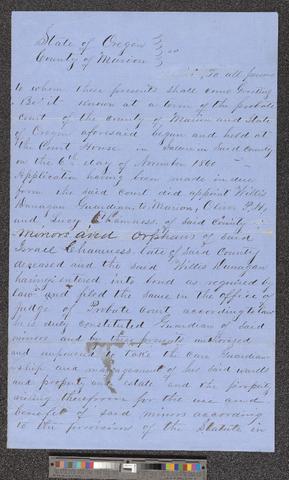 State of Oregon
County of Marion } ss
To all persons
to whom these presents shall come Greeting
Be it known at a term of the probate
court of the county of Marion and State
of Oregon aforesaid begun and held at
the Court House in Salem in Said County
on the 6th day of November 1860
Application having been made in due
form the said court did appoint Willis
Dunagan Guardian to Marion, Oliver P. H,
and Lucy Chamness, of said County
minors and orphans of said
Israel Chamness late of Said County
deceased and the said Willis Dunagan
having entered into bond as required by
law and filed the same in the office of
judge of Probate Court according to law
he is duly constituted Guardian of said
minors and by these presents authorized
and empowered to take the care Guardian
ship and management of his said wards
and property and estate and the property
arising therefrom for the use and
benefit of said minors according
to the provisions of the Statute in